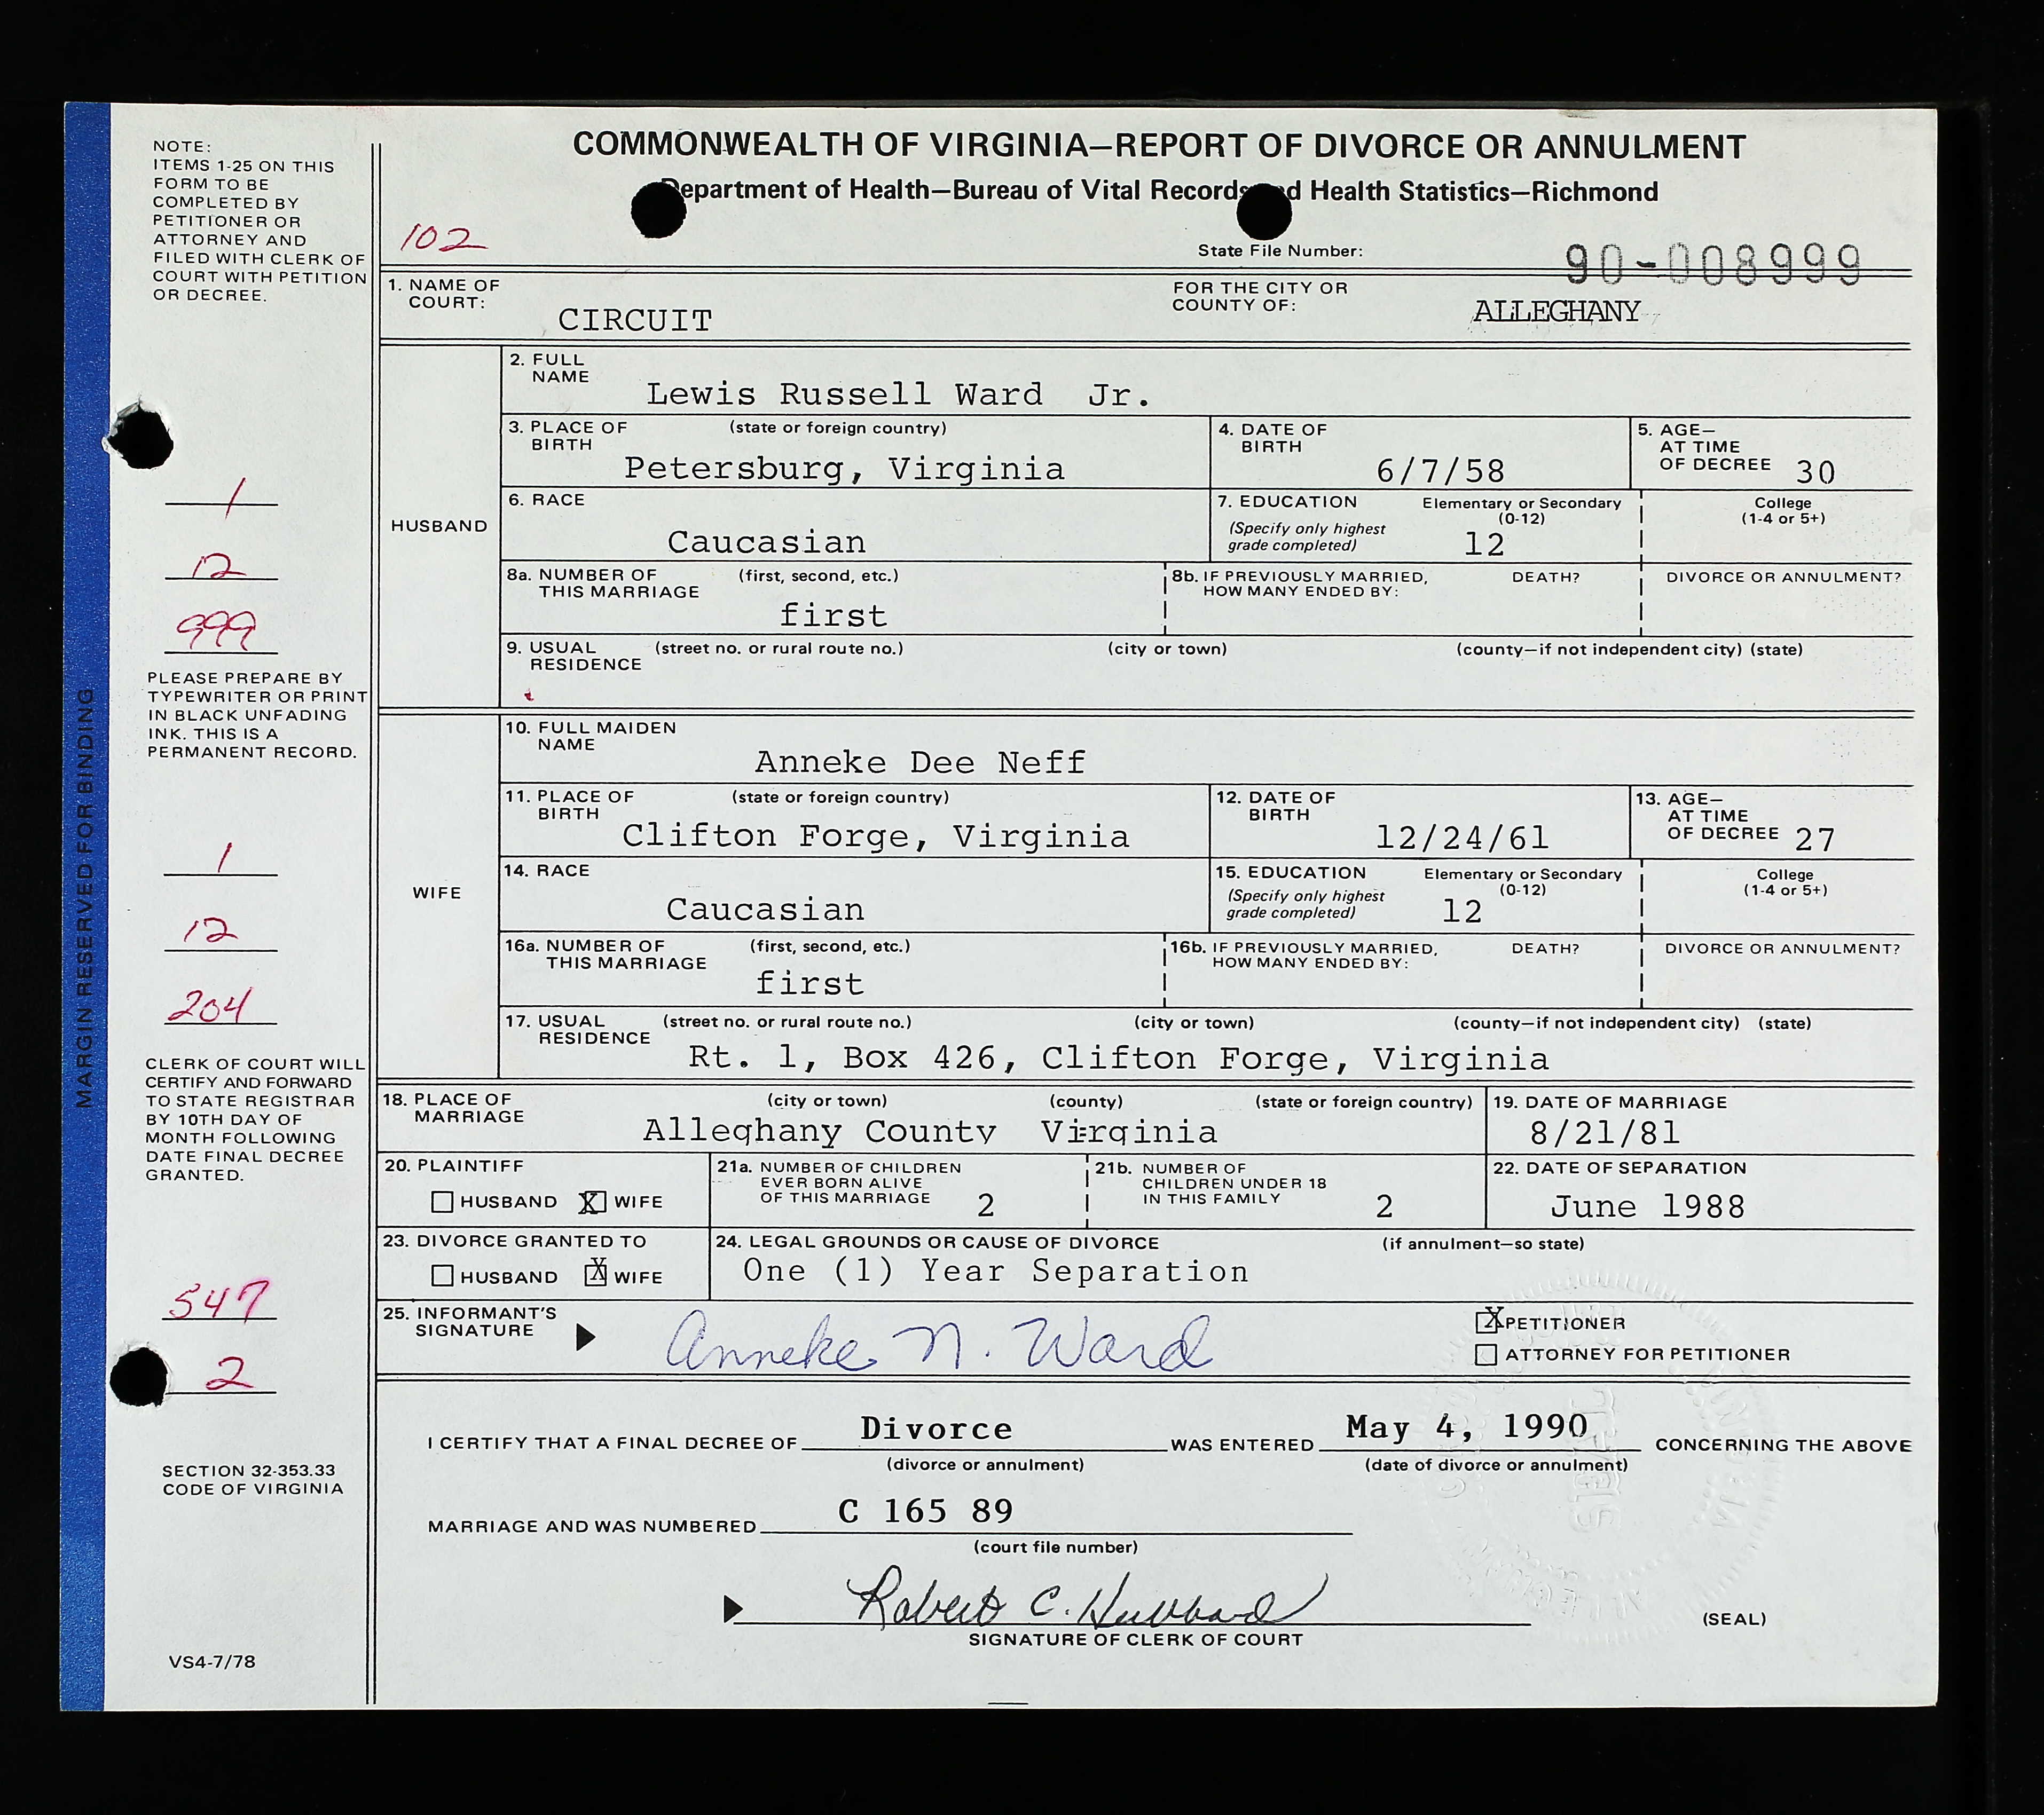 COMMONWEALTH OF VIRGINIA—REPORT OF DIVORCE OR ANNULMENT
Department of Health—Bureau of Vital Records and Health Statistics—Richmond
102
State File Number: 90-008999
NOTE:
ITEMS 1-25 ON THIS
FORM TO BE
COMPLETED BY
PETITIONER OR
ATTORNEY AND
FILED WITH CLERK OF
COURT WITH PETITION
OR DECREE.
1
12
999
PLEASE PREPARE BY
TYPEWRITER OR PRINT
IN BLACK UNFADING
INK. THIS IS A
PERMANENT RECORD.
1
12
204
CLERK OF COURT WILL
CERTIFY AND FORWARD
TO STATE REGISTRAR
BY 10TH DAY OF
MONTH FOLLOWING
DATE FINAL DECREE
GRANTED.
547
2
SECTION 32-353.33
CODE OF VIRGINIA
VS4-7/78
MARGIN RESERVED FOR BINDING
1. NAME OF COURT: CIRCUIT
FOR THE CITY OR COUNTY OF: ALLEGHANY
HUSBAND
2. FULL NAME Lewis Russell Ward Jr.
3. PLACE OF BIRTH (state or foreign country) Petersburg, Virginia
4. DATE OF BIRTH 6/7/58
5. AGE— AT TIME OF DECREE 30
6. RACE Caucasian
7. EDUCATION (Specify only highest grade completed) Elementary or Secondary (0-12) 12
College (1-4 or 5+)
8a. NUMBER OF THIS MARRIAGE (first, second, etc.) first
8b. IF PREVIOUSLY MARRIED, HOW MANY ENDED BY: DEATH? DIVORCE OR ANNULMENT?
9. USUAL RESIDENCE (street no. or rural route no.) (city or town) (county—if not independent city) (state)
WIFE
10. FULL MAIDEN NAME Anneke Dee Neff
11. PLACE OF BIRTH (state or foreign country) Clifton Forge, Virginia
12. DATE OF BIRTH 12/24/61
13. AGE— AT TIME OF DECREE 27
14. RACE Caucasian
15. EDUCATION (Specify only highest grade completed) Elementary or Secondary (0-12) 12
College (1-4 or 5+)
16a. NUMBER OF THIS MARRIAGE (first, second, etc.) first
16b. IF PREVIOUSLY MARRIED, HOW MANY ENDED BY: DEATH? DIVORCE OR ANNULMENT?
17. USUAL RESIDENCE (street no. or rural route no.) (city or town) (county—if not independent city) (state)
Rt. 1, Box 426, Clifton Forge, Virginia
18. PLACE OF MARRIAGE (city or town) (county) (state or foreign country)
Alleghany County Virginia
19. DATE OF MARRIAGE 8/21/81
20. PLAINTIFF HUSBAND X WIFE
21a. NUMBER OF CHILDREN EVER BORN ALIVE OF THIS MARRIAGE 2
21b. NUMBER OF CHILDREN UNDER 18 IN THIS FAMILY 2
22. DATE OF SEPARATION June 1988
23. DIVORCE GRANTED TO HUSBAND X WIFE
24. LEGAL GROUNDS OR CAUSE OF DIVORCE (if annulment—so state)
One (1) Year Separation
25. INFORMANT'S SIGNATURE Anneke N. Ward
X PETITIONER
ATTORNEY FOR PETITIONER
I CERTIFY THAT A FINAL DECREE OF Divorce WAS ENTERED May 4, 1990 CONCERNING THE ABOVE
(divorce or annulment) (date of divorce or annulment)
MARRIAGE AND WAS NUMBERED C 165 89
(court file number)
Robert C. Hubbard
SIGNATURE OF CLERK OF COURT
(SEAL)